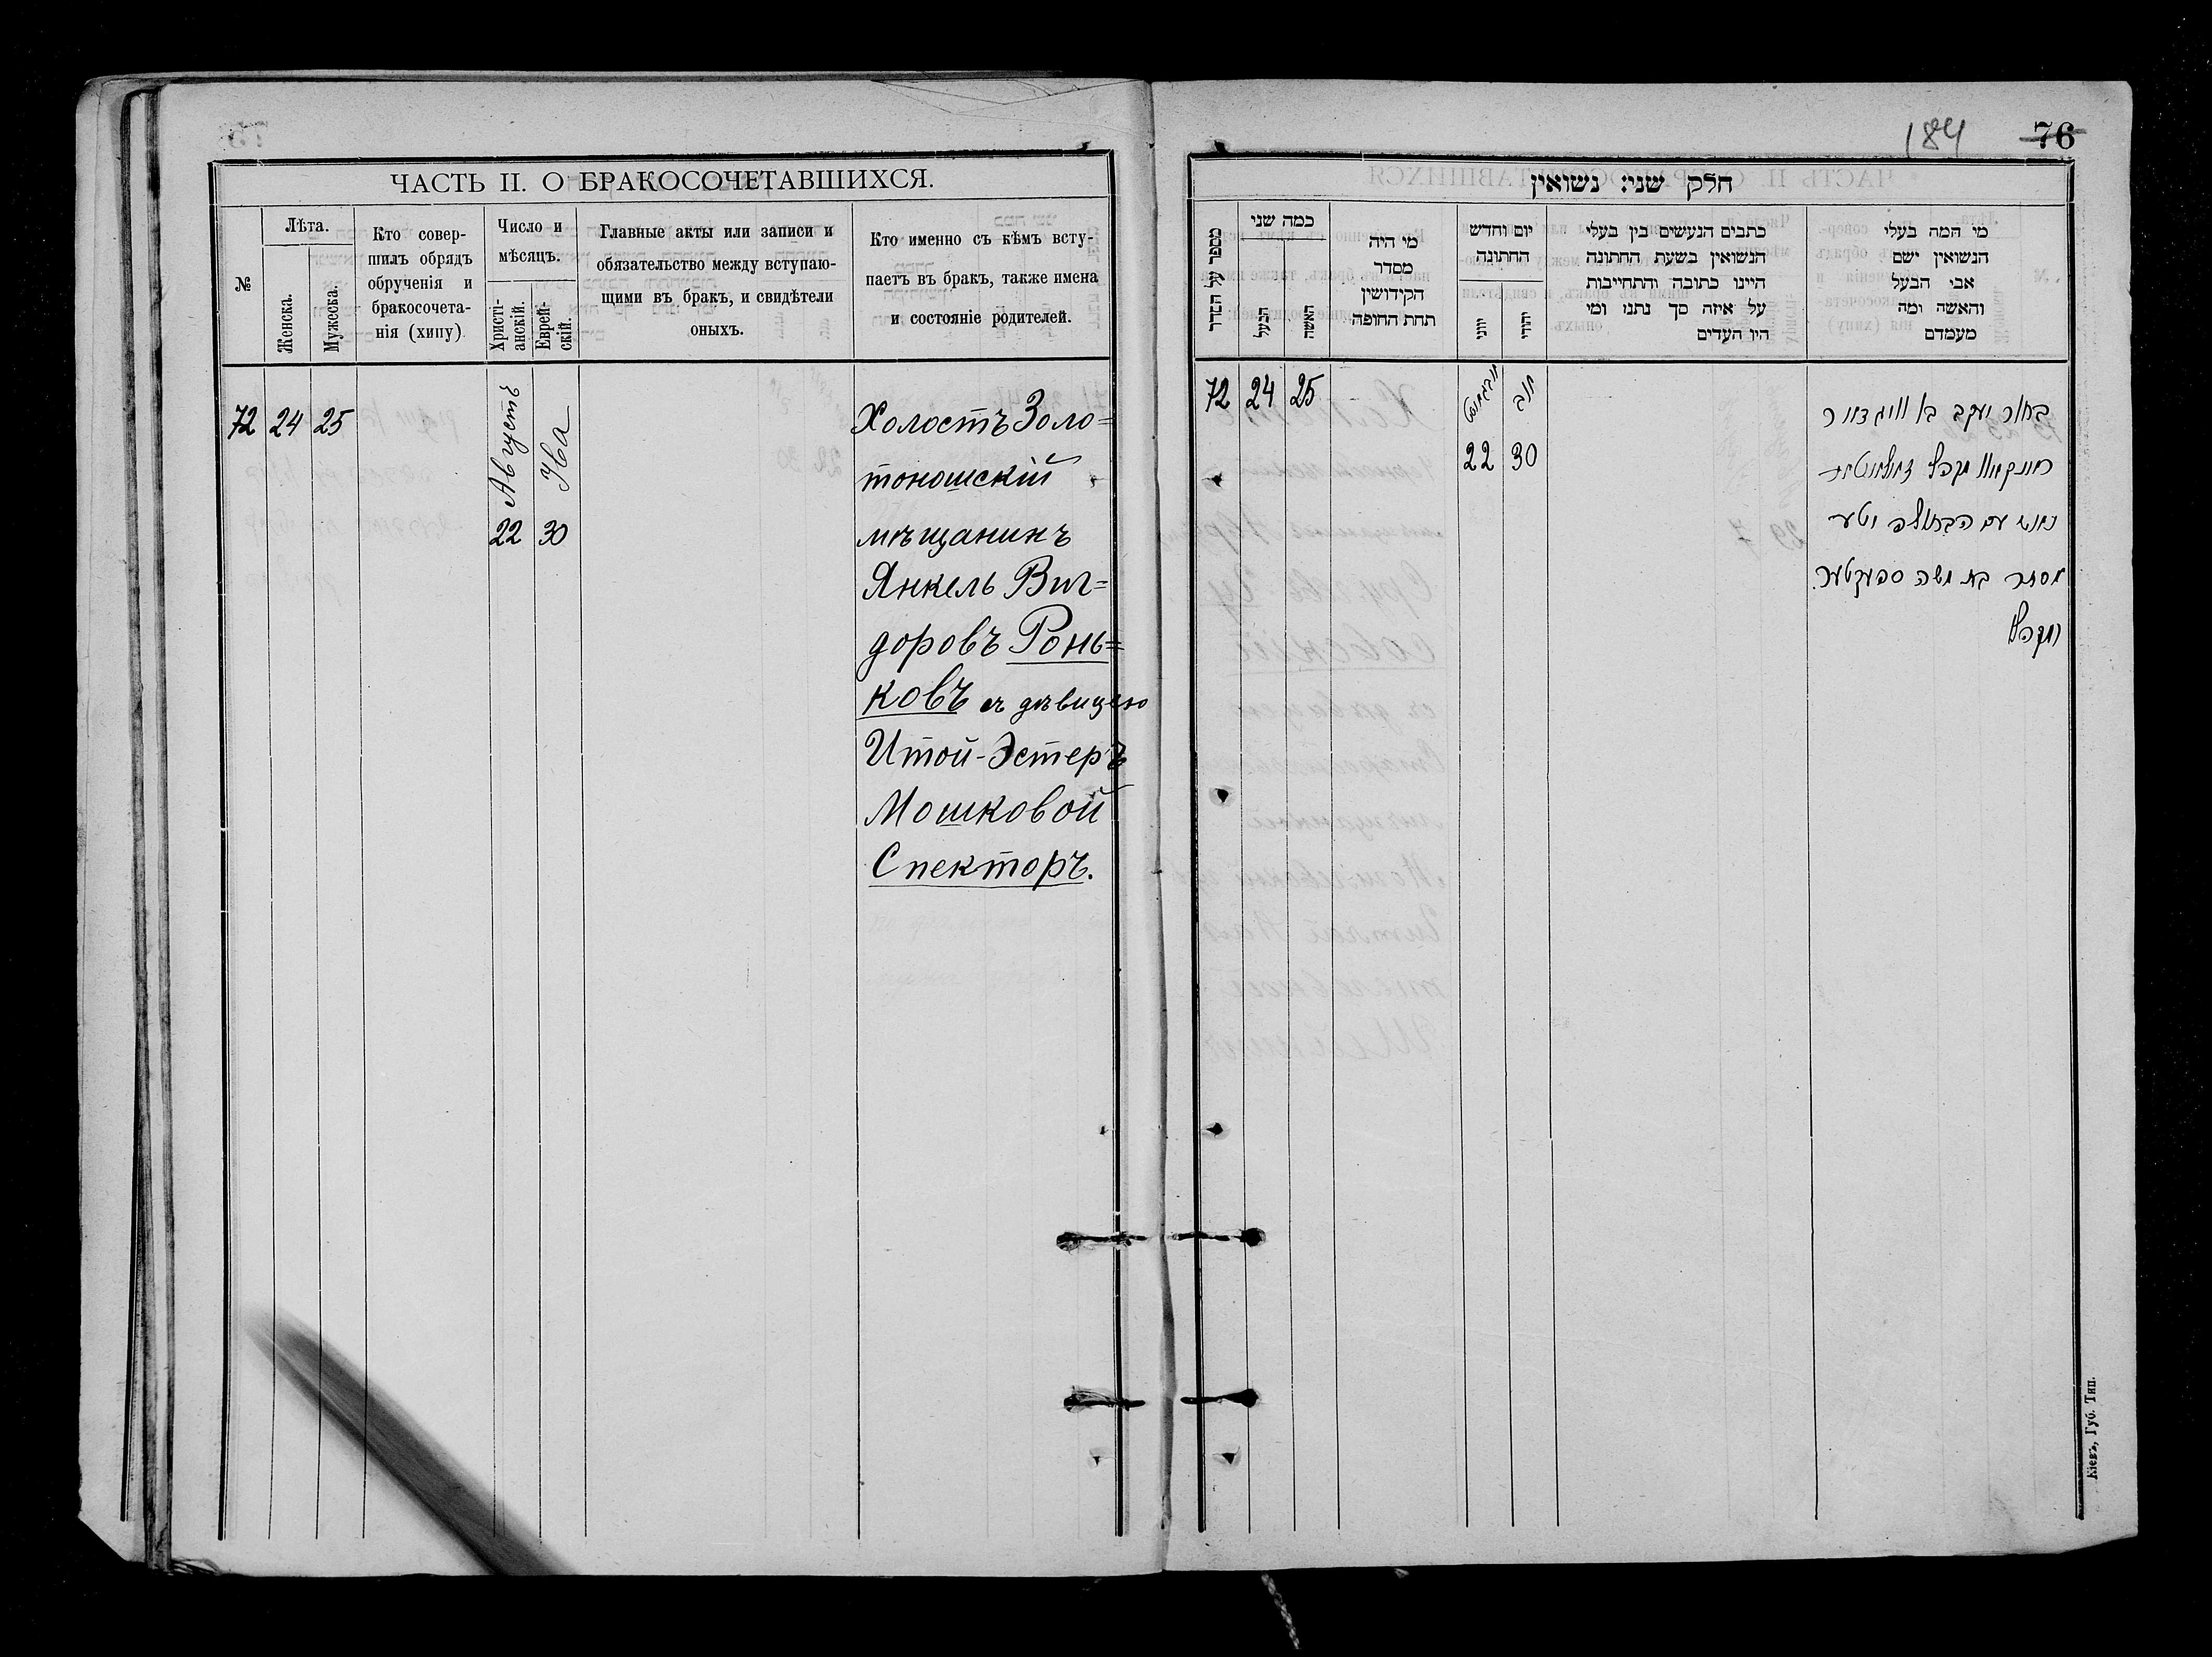 ЧАСТЬ II. О БРАКОСОЧЕТАВШИХСЯ.
№
Лѣта.
Женска.
Мужеска.
Кто совер-
шилъ обрядъ
обрученія и
бракосочета-
нія (хипу)
Число и
мѣсяцъ.
Христі-
анскій.
Еврей-
скій.
Главные акты или записи и
обязательство между вступаю-
щими въ бракъ, и свидѣтели
оныхъ.
Кто именно съ кѣмъ всту-
паетъ въ бракъ, также имена
и состояніе родителей.
72 24 25
Августъ
22 30
Холостъ Золо=
тоношскій
мѣщанинъ
Янкель Виг=
доровъ Понь=
ковъ съ дѣвицею
Итой-Эстеръ
Мошковой
Спекторъ.
184 76
חלק שני: נשואין
מספר על הסדר
כמה שני
הבעל
האשה
מי היה
מסדר
הקידושין
תחת החופה
יום וחדש
החתונה
יוני
יהודי
כתבים הנעשים בין בעלי
הנשואין בשעת החתונה
היינו כתובה והתחייבות
על איזה סך נתנו ומי
היו העדים
מי המה בעלי
הנשואין ישם
אבי הבעל
והאשה ומה
מעמדם
72 24 25
אב
22 30
בחור יעקב בן וויגדאר
נשא עם הבתולה יטע
אסתר בת משה ספעקטער.
Кіевъ, Губ. Тип.